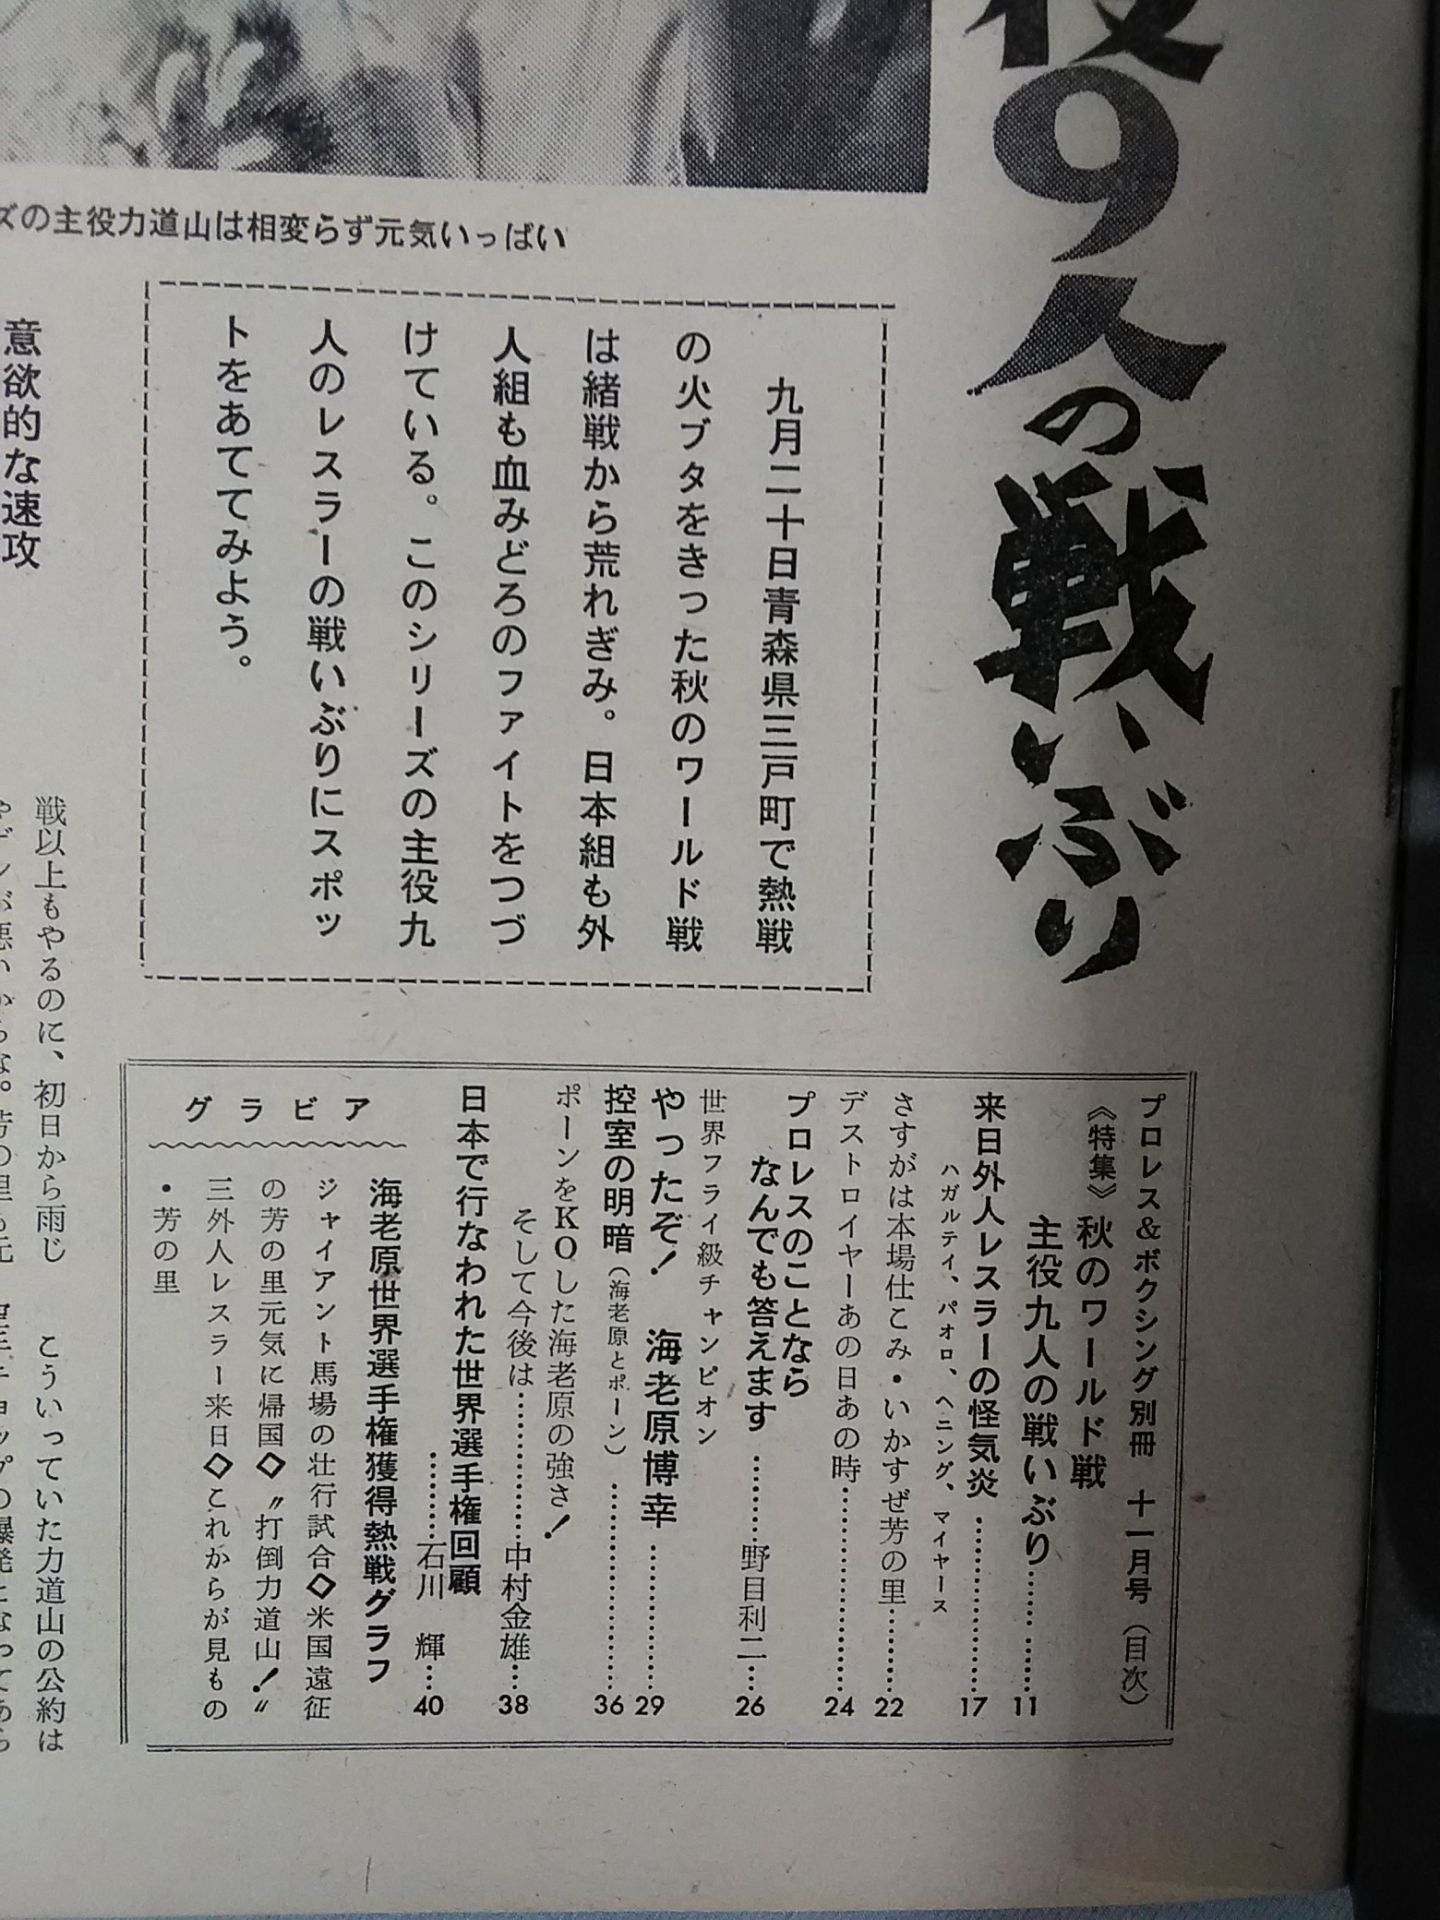 役9人の戦いぶり
ズの主役力道山は相変らず元気いっぱい
九月二十日青森県三戸町で熱戦
の火ブタをきった秋のワールド戦
は緒戦から荒れぎみ。日本組も外
人組も血みどろのファイトをつづ
けている。このシリーズの主役九
人のレスラーの戦いぶりにスポッ
トをあててみよう。
意欲的な速攻
戦以上もやるのに、初日から雨じ
こういっていた力道山の公約は
プロレス&ボクシング別冊 十一月号(目次)
《特集》秋のワールド戦
主役九人の戦いぶり…………11
来日外人レスラーの怪気炎…………17
ハガルテイ、パオロ、ヘニング、マイヤース
さすがは本場仕こみ・いかすぜ芳の里………22
デストロイヤーあの日あの時…………24
プロレスのことなら
なんでも答えます………野目利二…26
世界フライ級チャンピオン
やったぞ! 海老原博幸…………29
控室の明暗(海老原とポーン)…………36
ポーンをKOした海老原の強さ!
そして今後は…………中村金雄…38
日本で行なわれた世界選手権回顧
………石川 輝…40
グラビア
海老原世界選手権獲得熱戦グラフ
ジャイアント馬場の壮行試合◇米国遠征
の芳の里元気に帰国◇〝打倒力道山!〟
三外人レスラー来日◇これからが見もの
・芳の里